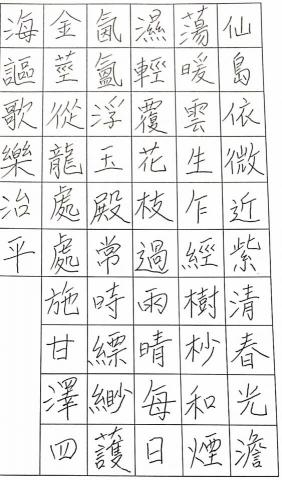 仙島依微近紫清春光澹
蕩暖雲生乍經樹杪和煙
濕輕覆花枝過雨晴每日
氤氳浮玉殿常時縹緲護
金莖從龍處處施甘澤四
海謳歌樂治平